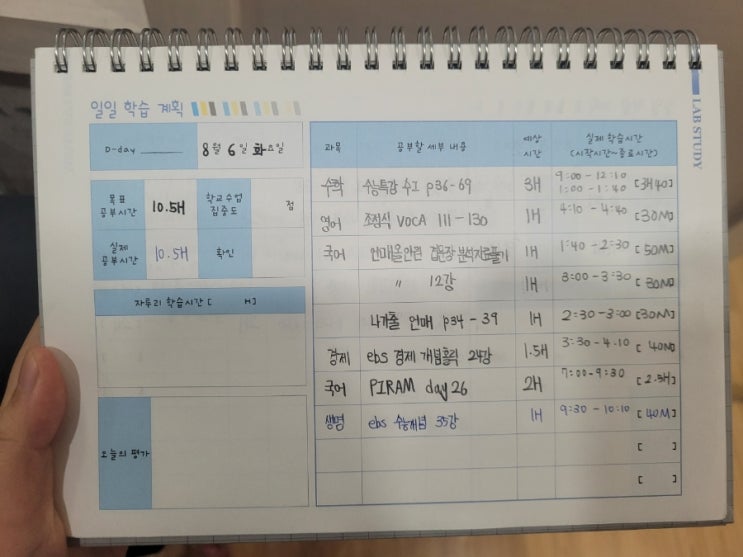 일일 학습 계획
LAB STUDY
D-day
8월 6일 화요일
목표 공부시간 10.5H 학교수업 집중도 점
실제 공부시간 10.5H 확인
자투리 학습시간 [ H]
오늘의 평가
과목 공부할 세부 내용 예상 시간 실제 학습시간 (시작시간~종료시간)
수학 수능특강 수I p36-69 3H 9:00 - 12:10
1:00 - 1:40 [3H40]
영어 조정식 VOCA 111-130 1H 4:10 - 4:40 [30M]
국어 언매올인원 겹문장 분석자료풀기 1H 1:40 - 2:30 [50M]
" 12강 1H 3:00 - 3:30 [30M]
나기출 언매 p34-39 1H 2:30 - 3:00 [30M]
경제 ebs 경제 개념홀릭 24강 1.5H 3:30 - 4:10 [40M]
국어 PIRAM day 26 2H 7:00 - 9:30 [2.5H]
생명 ebs 수능개념 35강 1H 9:30 - 10:10 [40M]
[ ]
[ ]